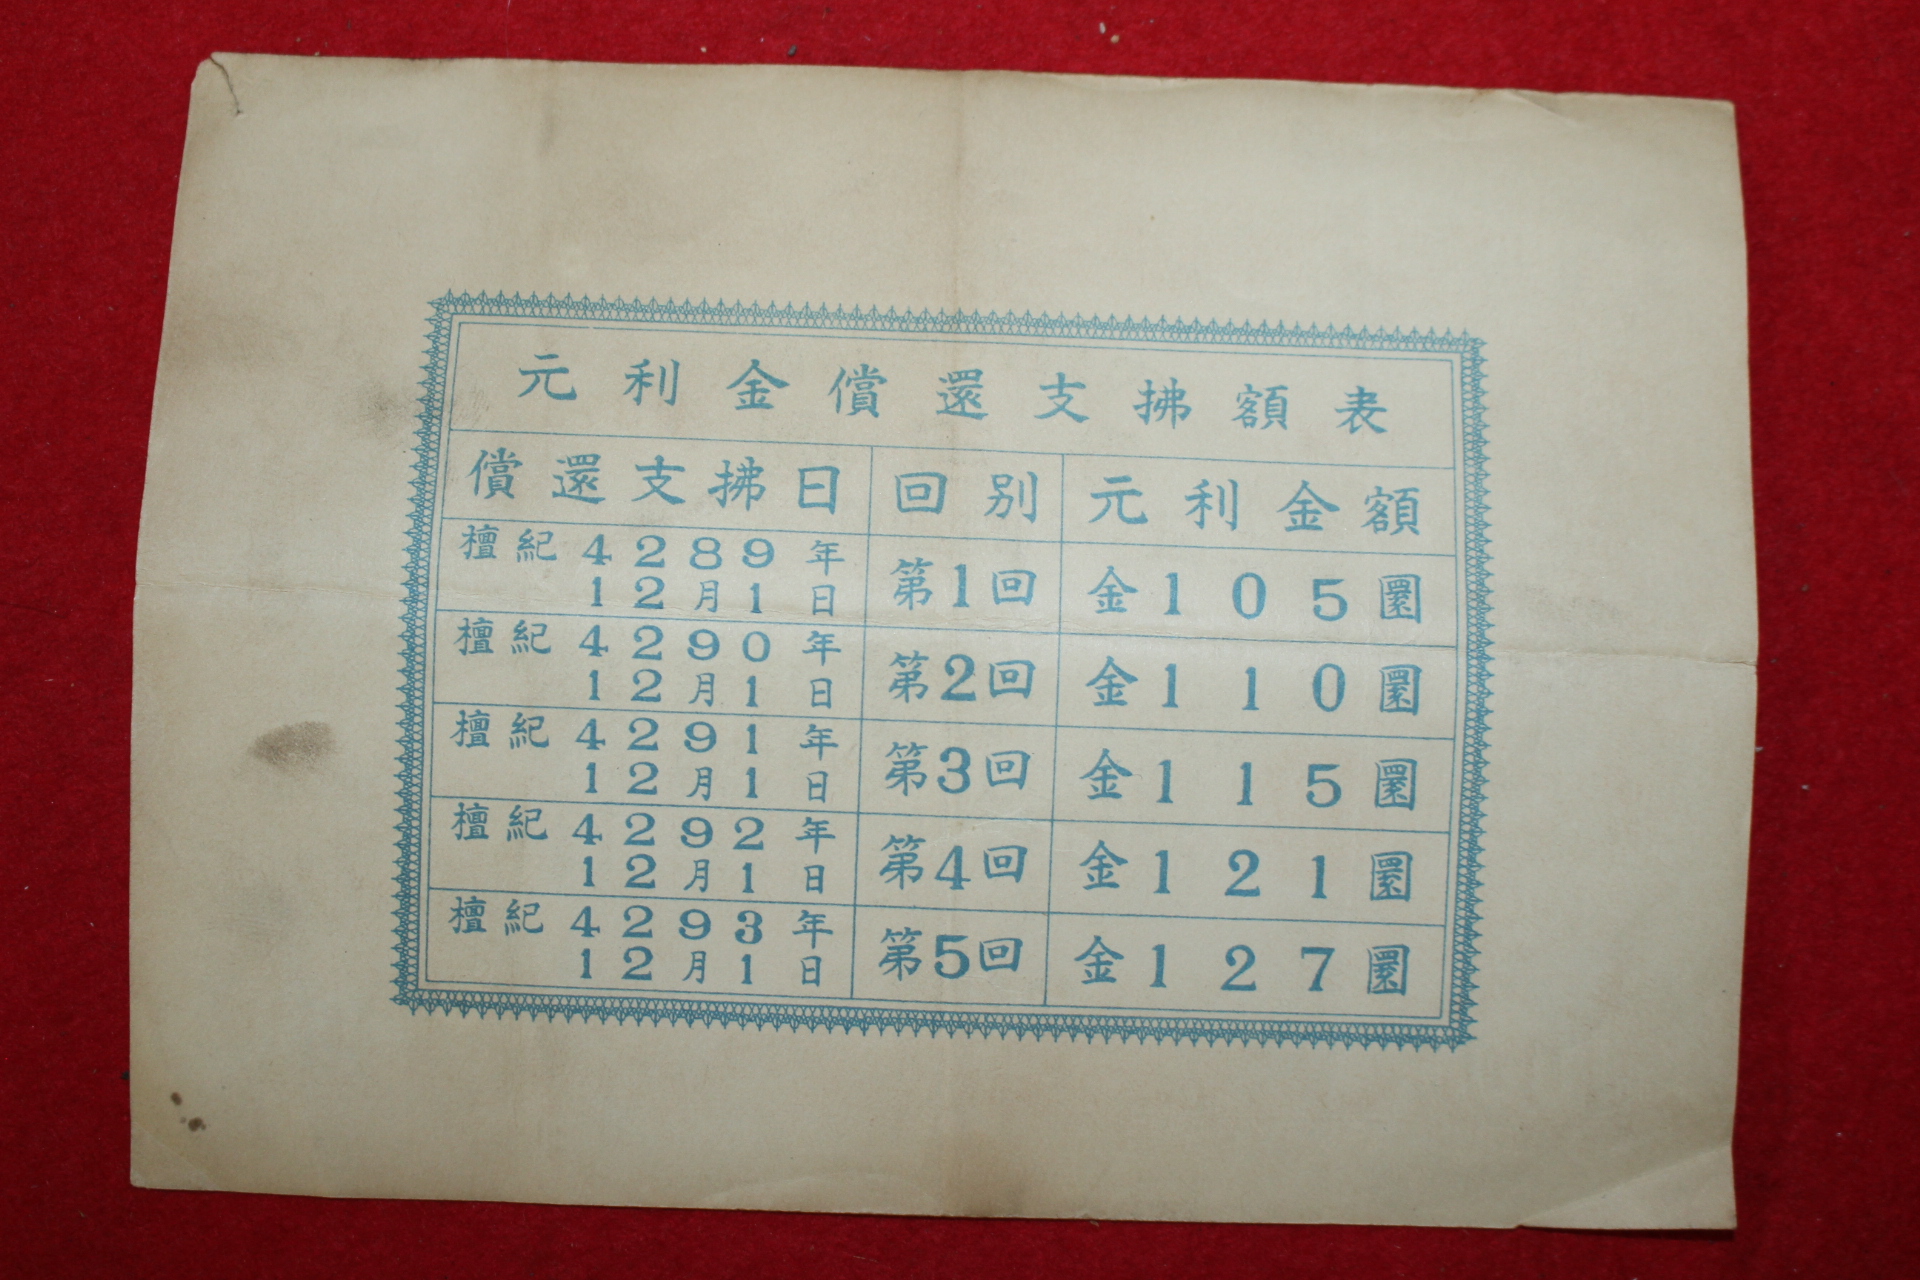 元利金償還支拂額表
償還支拂日 回別 元利金額
檀紀4289年
12月1日 第1回 金105圜
檀紀4290年
12月1日 第2回 金110圜
檀紀4291年
12月1日 第3回 金115圜
檀紀4292年
12月1日 第4回 金121圜
檀紀4293年
12月1日 第5回 金127圜